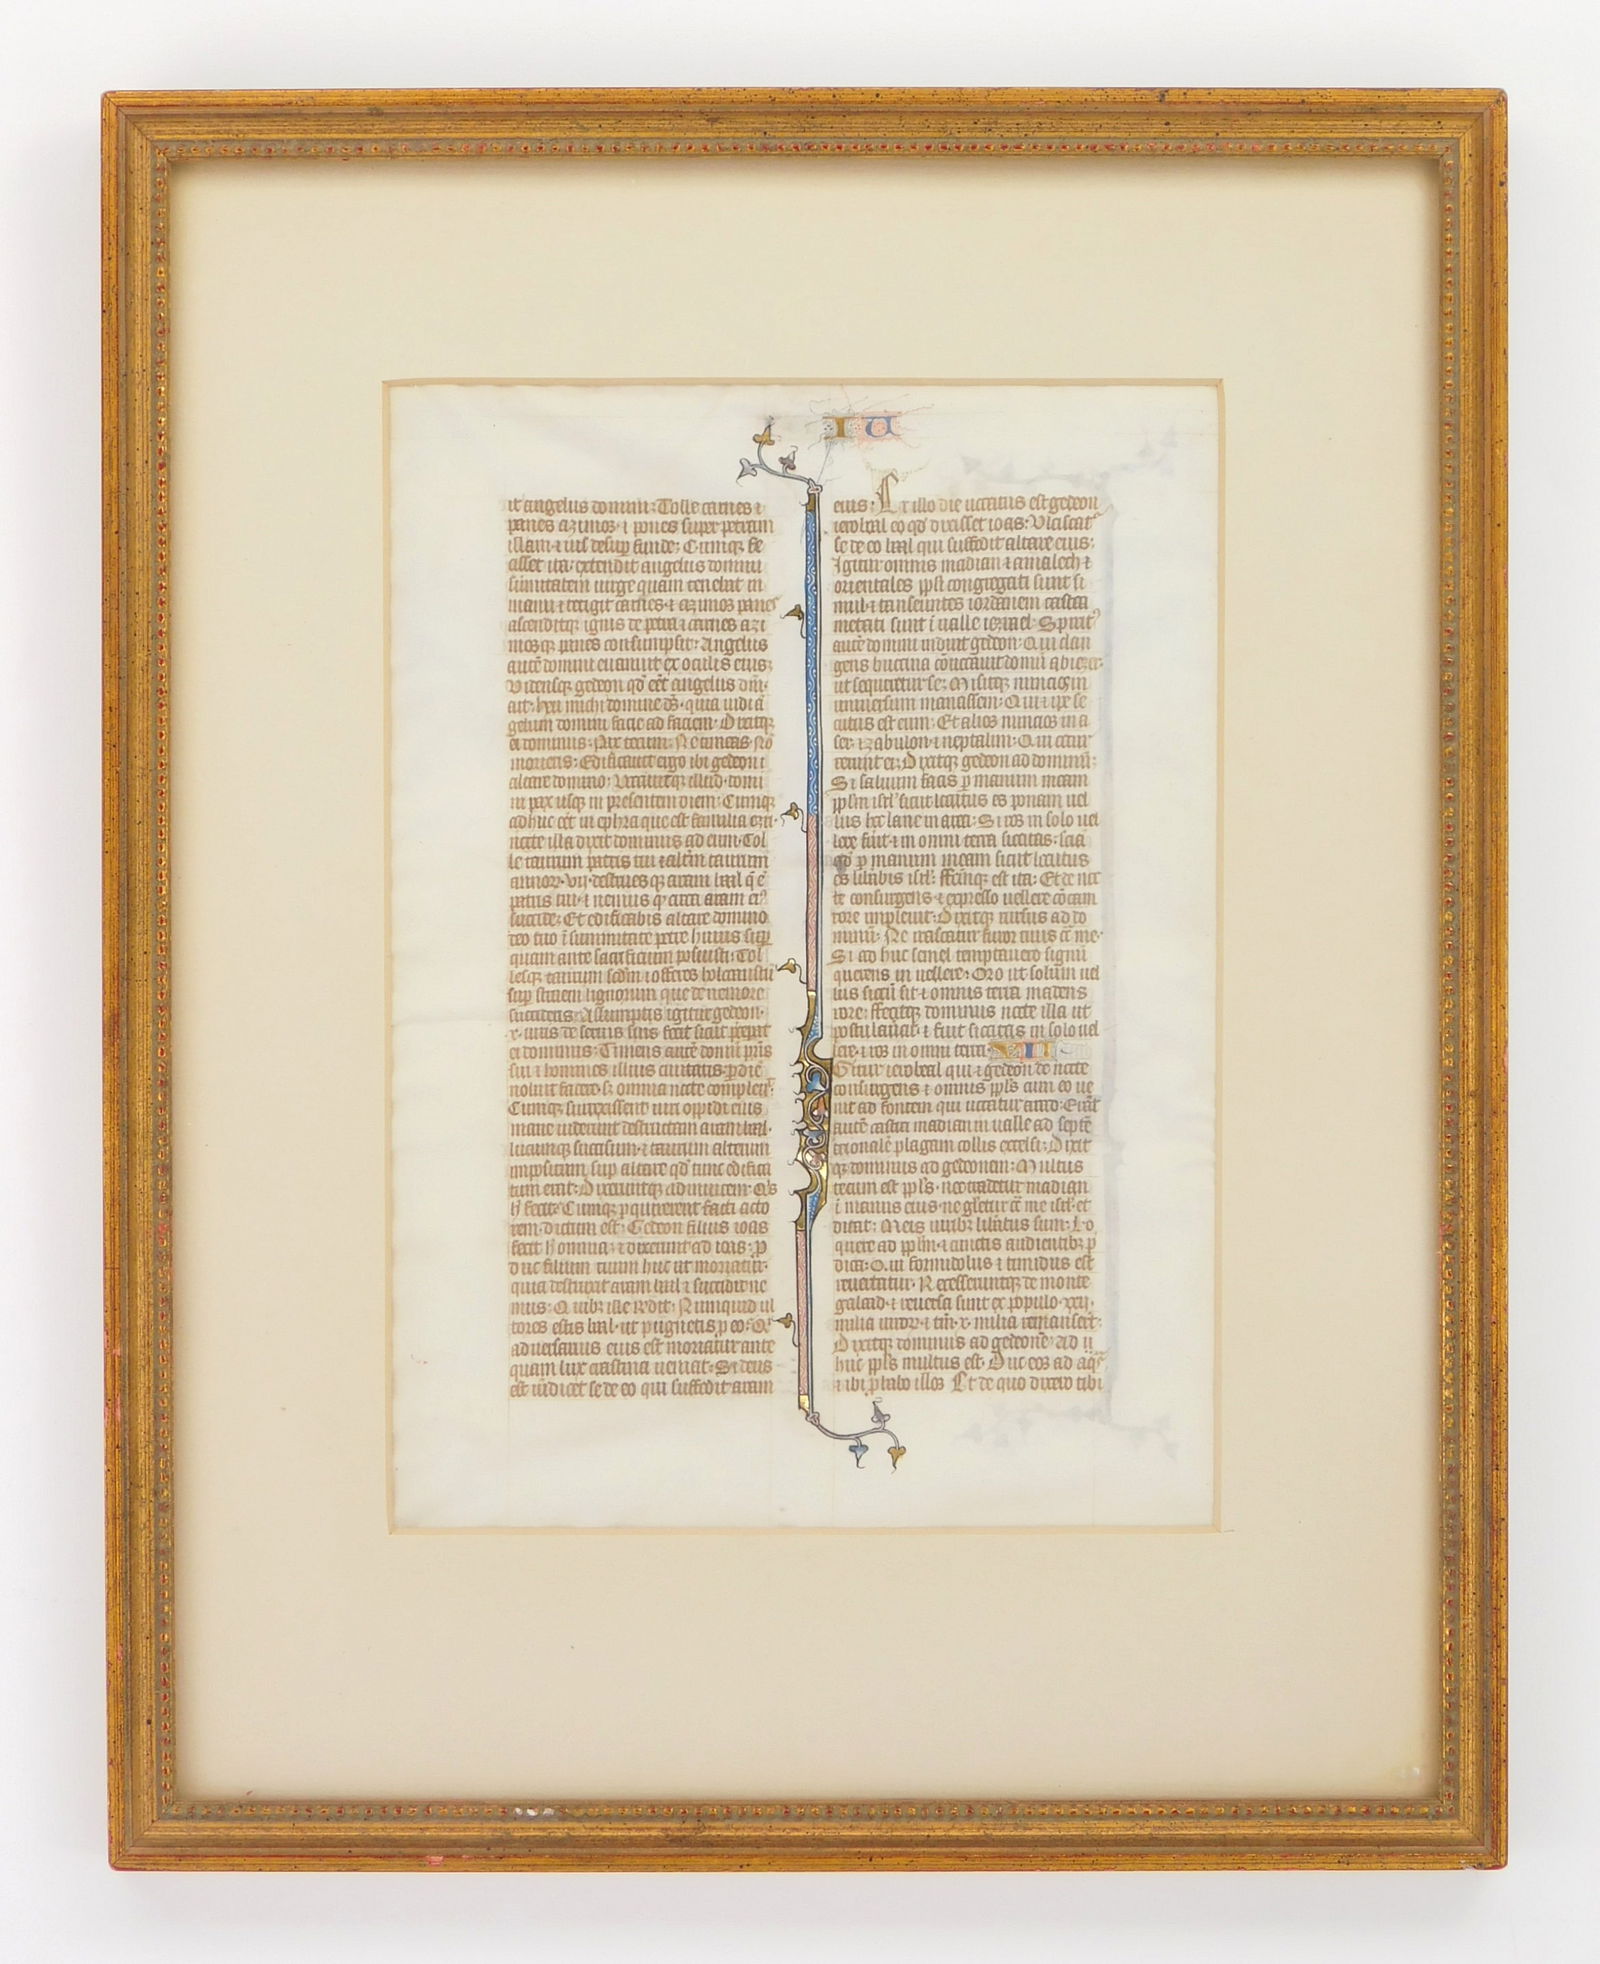 IU
it angelus domini: Tolle carnes ⁊
panes azimos· ⁊ pones super petram
illam· ⁊ ius desup̄ funde: Cumqꝫ fe
cisset ita: extendit angelus domini
sūmitatem uirge quam tenebat in
manu ⁊ tetigit carnes· ⁊ azimos panes
ascenditqꝫ ignis de petra ⁊ carnes azi
mosqꝫ panes consumpsit: Angelus
autē domini euanuit ex oculis eius:
Vidensqꝫ gedeon qd̄ eēt angelus dn̄i·
ait: heu michi domine ds̄· quia uidi ā
gelum domini facie ad faciem: Dixitqꝫ
ei dominus: Pax tecum: Ne timeas· nō
morieris: Edificauit ergo ibi gedeon ⁊
altare domino: Vocauitqꝫ illud· domi
ni pax usqꝫ in presentem diem: Cumqꝫ
adhuc eēt in ephra que est familia ezri·
nocte illa dixit dominus ad eum: Tol
le taurum patris tui ⁊ altm̄ taurum
annoꝝ· vij· destruesqꝫ aram baal q̄ ē
patris tui· ⁊ nemus qd̄ circa aram ē·
succide: Et edificabis altare domino
deo tuo ī summitate petre huius sup̄
quam ante sacrificium posuisti: Tol
lesqꝫ taurum scdm̄ ⁊ offeres holocaustū
sup̄ struem lignorum que de nemore
succideris: Assumptis igitur gedeon·
·x· uiris de seruis suis fecit sicut p̄ceperat
ei dominus: Timens autē domū pr̄is
sui ⁊ homines illius ciuitatis· ꝑ diē
noluit facere· sꝫ omnia nocte compleuit:
Cumqꝫ surrexissent uiri oppidi eius
mane uiderunt destructam aram baal·
lucumqꝫ succisum· ⁊ taurum alterum
impositum sup̄ altare qd̄ tunc edifica
tum erat: Dixeruntqꝫ ad inuicem: Q's
h̄ fecit: Cumqꝫ ꝑquirerent facti acto
rem· dictum est: Gedeon filius ioas
fecit h̄ omnia: ⁊ dixerunt ad ioas: ꝓ
duc filium tuum huc ut moriatur·
quia destruxit aram baal ⁊ succidit ne
mus: Quibꝫ ille rn̄dit: Numquid ul
tores estis baal· ut pugnetis ꝓ eo: Qi
aduersarius eius est moriatur ante
quam lux crastina ueniat: Si deus
est uīdicet se de eo qui suffodit aram
eius: Ex illo die uocatus est gedeon
ierobaal eo qd̄ dixisset ioas: Vlciscatur
se de eo baal qui suffodit altare eius:
Igitur omnis madian ⁊ amalech ⁊
orientales ppl̄i congregati sunt si
mul· ⁊ transeuntes iordanem castra
metati sunt ī ualle iezrael: Spirit'
autē domini induit gedeon: Qui clan
gens buccina cōuocauit domū abiezer·
ut sequeretur se: Misitqꝫ nuncios in
uniuersum manassem: Qui ⁊ ipse se
cutus est eum: Et alios nuncios in a
ser· ⁊ zabulon· ⁊ neptalim: Qui occur
rerunt ei: Dixitqꝫ gedeon ad dominū:
Si saluum facis ꝑ manum meam
ppl̄m isrl̄ sicut locutus es ponam uel
lus hoc lane in area: Si ros in solo uel
lere fūit· ⁊ in omni terra siccitas: sciā
qd̄ ꝑ manum meam sicut locutus
es lib̄abis isrl̄: ffc̄umqꝫ est ita: Et de noc
te consurgens· ⁊ expresso uellere cōcam
rore impleuit: Dixitqꝫ rursus ad do
minū: Ne irascatur furor tuus cō me·
Si ad huc semel temptauero signū
querens in uellere: Oro ut solum uel
lus siccū sit· ⁊ omnis terra madens
rore: ffecitqꝫ dominus nocte illa ut
postulauat· ⁊ fuit siccitas in solo uel
lere· ⁊ ros in omni terra: VII
Igitur ierobaal qui ⁊ gedeon de nocte
consurgens ⁊ omnis ppl̄s cum eo ue
nit ad fontem qui uocatur arad: Erāt
autē castra madian in ualle ad septē
trionalē plagam collis excelsi: Dixit
qꝫ dominus ad gedeonem: Multus
tecum est ppl̄s· nec tradetur madian
ī manus eius· ne gl̄ietur cō me isrl̄· et
dicat: Meis uiribꝫ lib̄atus sum: Lo
quere ad ppl̄m· ⁊ cunctis audientibꝫ p̄
dica: Qui formidolus ⁊ timidus est
reuertatur: Recesseruntqꝫ de monte
galaad· ⁊ reuersa sunt ex populo ·xxij·
milia uiroꝝ· ⁊ tm̄ ·x· milia remanserūt:
Dixitqꝫ dominus ad gedeonē: Ad
huc ppl̄s multus est: Duc eos ad aq̄s
⁊ ibi ꝓbabo illos Et de quo dixero tibi